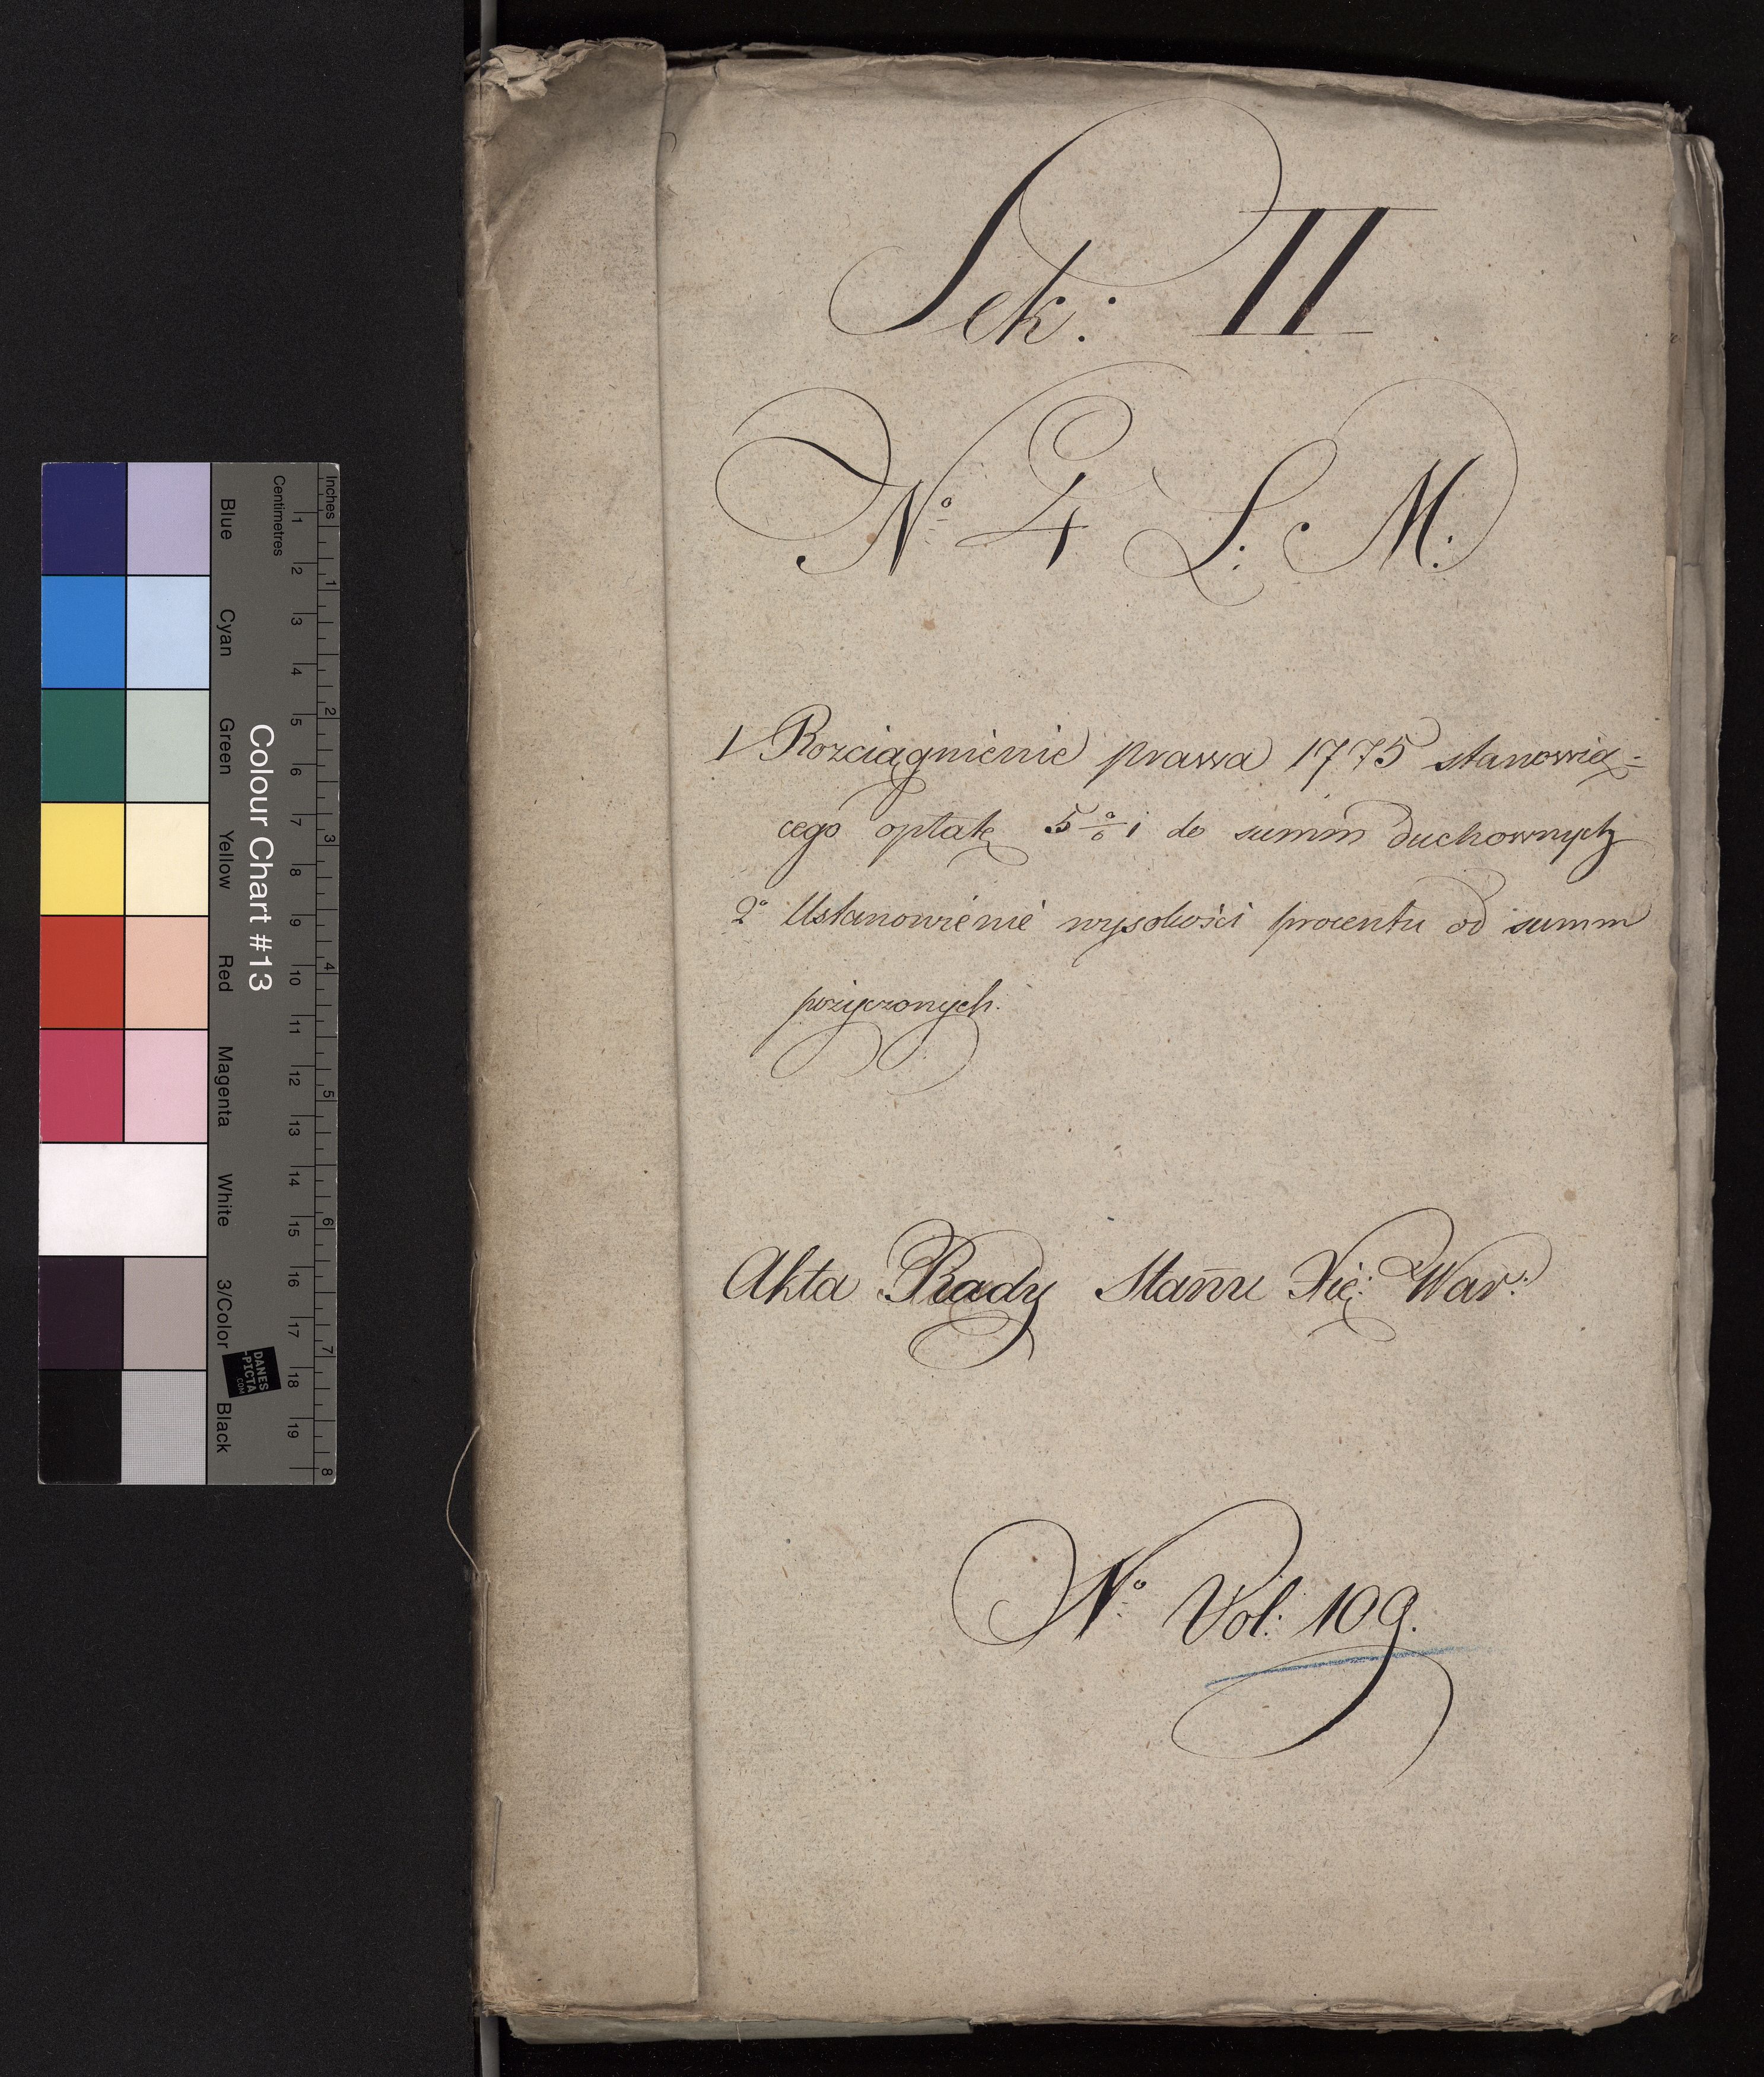 Sek: II
No 4 L: M:
1 Rozciągnienie prawa 1775 stanowią=
cego opłatę 5 % i do summ duchownych
2o Ustanowienie wysokości procentu od summ
pożyczonych.
Akta Rady Stanu Xię: War:
No Vol: 109.
Colour Chart #13
Blue Cyan Green Yellow Red Magenta White 3/Color Black
Centimetres 1 2 3 4 5 6 7 8 9 10 11 12 13 14 15 16 17 18 19
Inches 1 2 3 4 5 6 7 8
DANES
-PICTA
.COM